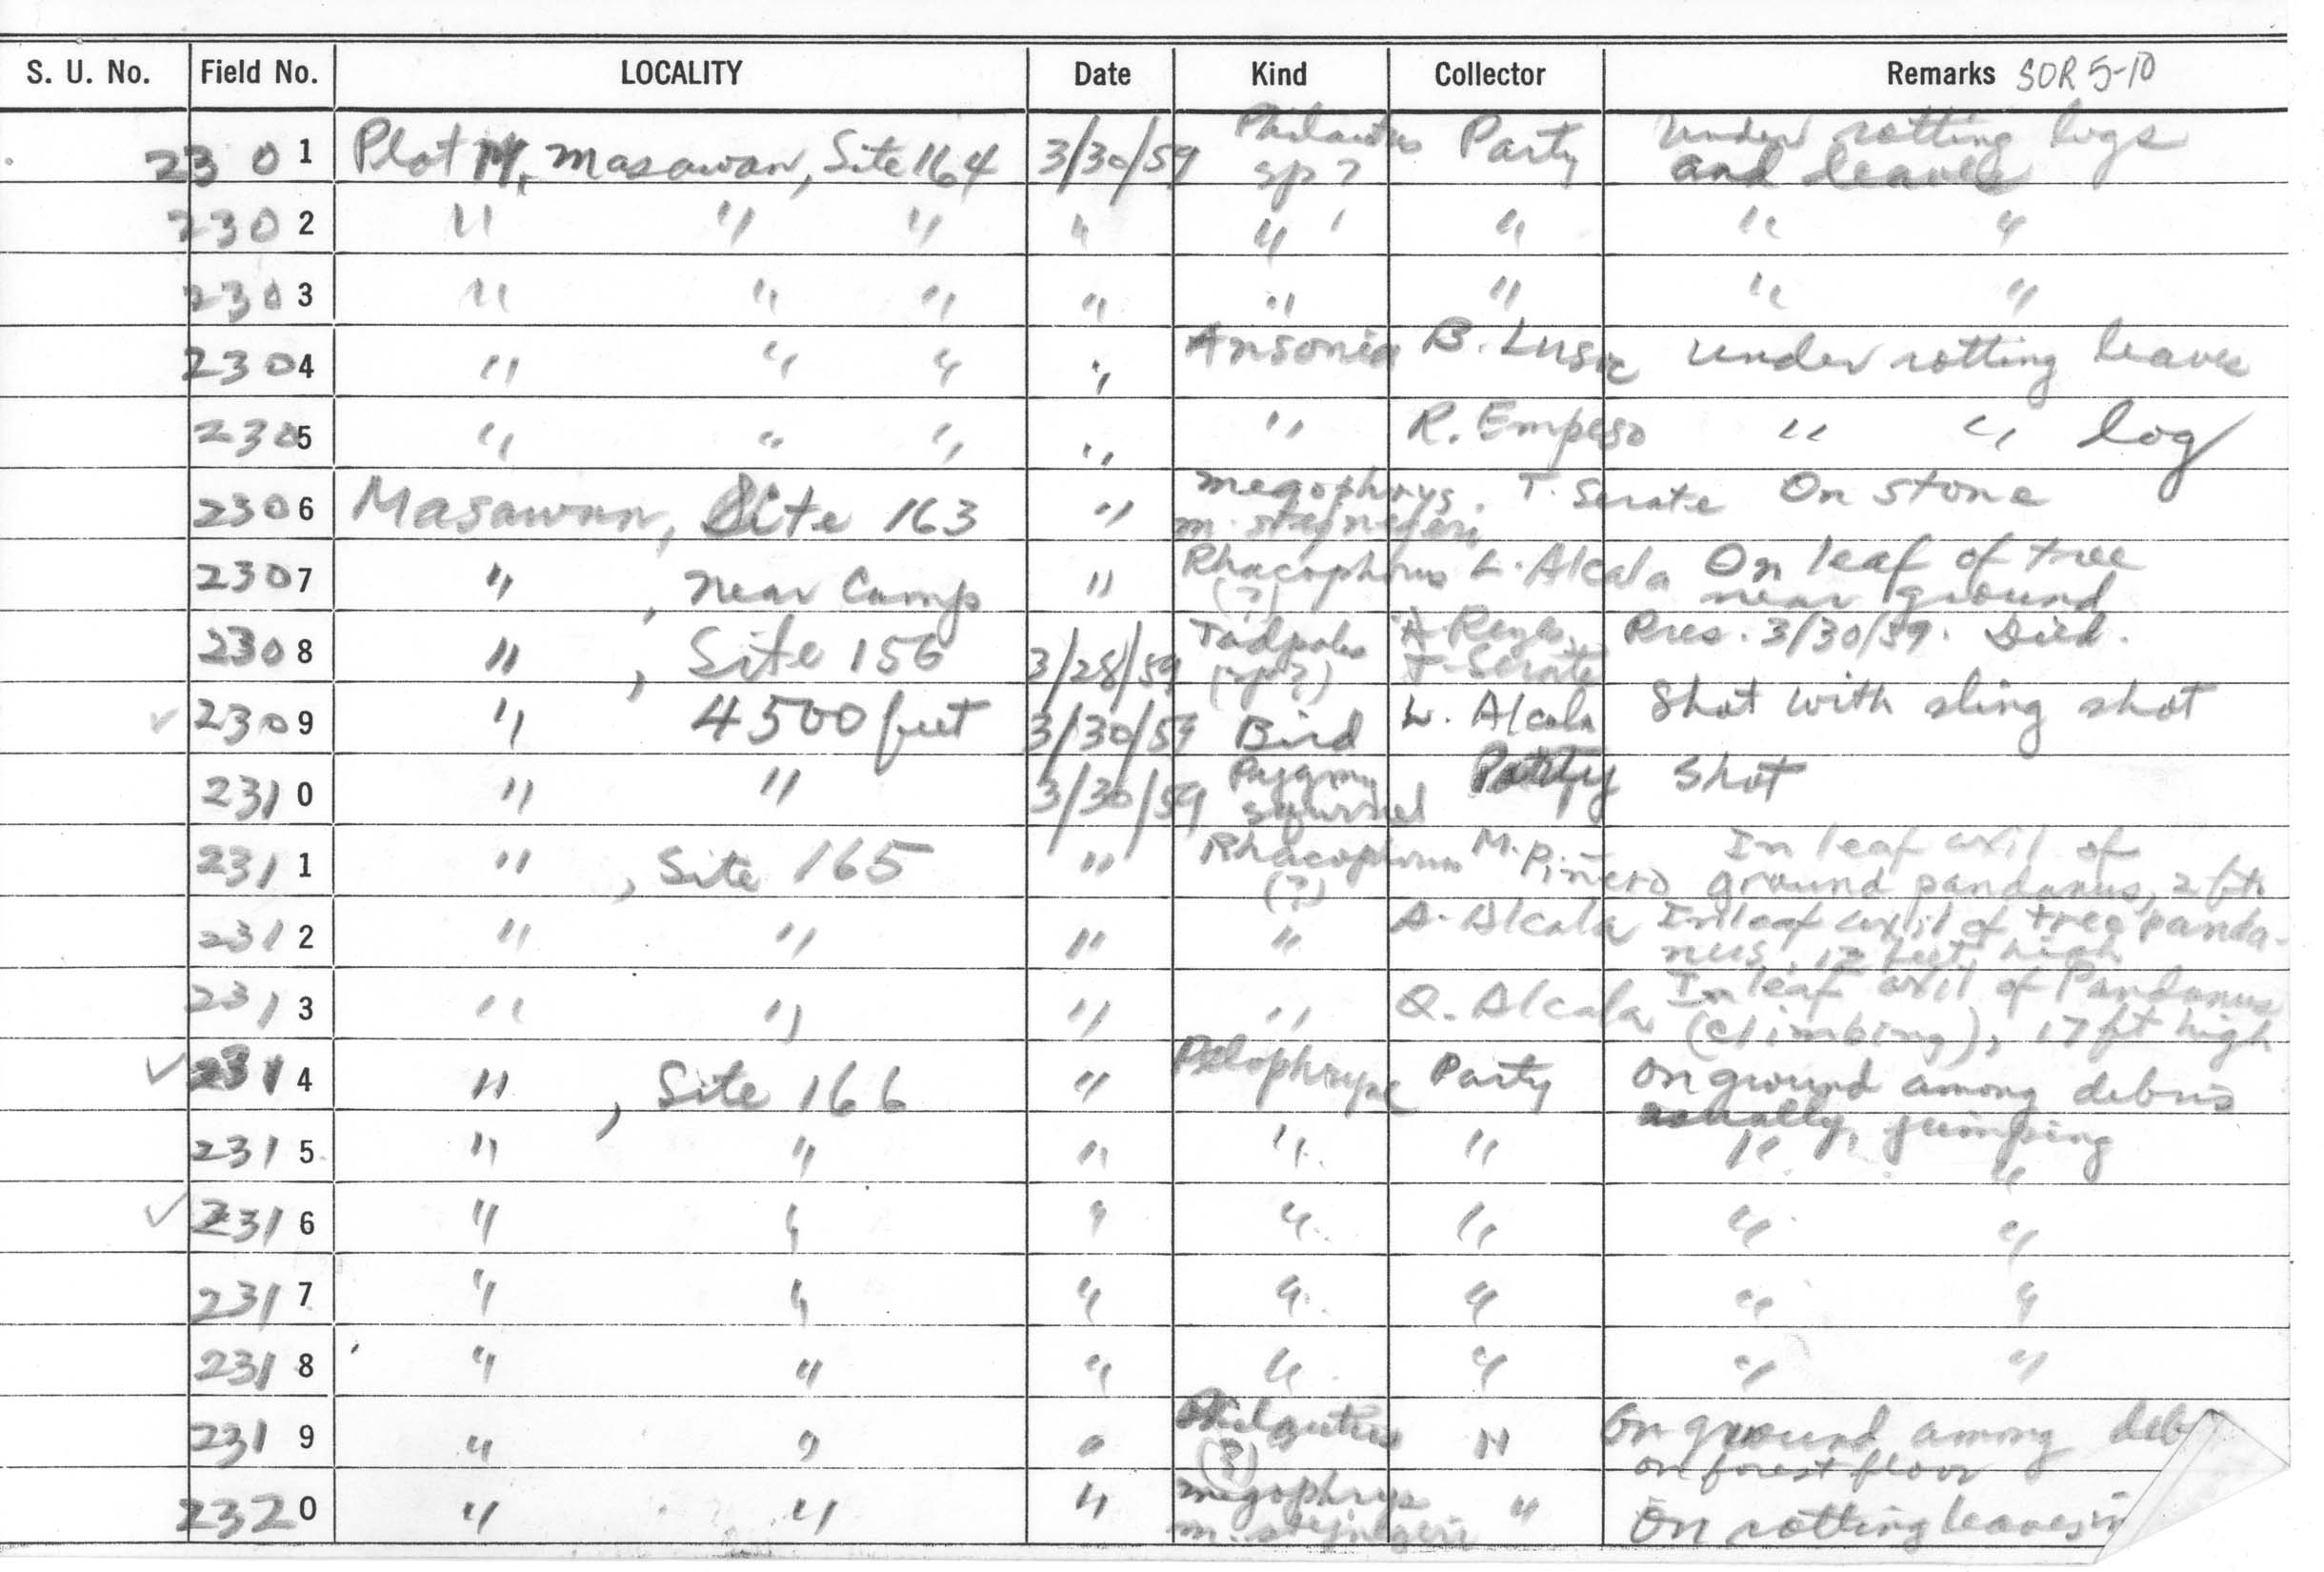 S. U. No. Field No. LOCALITY Date Kind Collector Remarks SOR 5-10
2301 Plot M, Masawan, Site 164 3/30/59 Philautus sp? Party Under rotting logs and leaves
2302 " " " " " " " "
2303 " " " " " " " "
2304 " " " " Ansonia B. Lusic Under rotting leaves
2305 " " " " " R. Empeso " " log
2306 Masawan, Site 163 " Megophrys m. stejnegeri T. Serate On stone
2307 " , near Camp " Rhacophorus (?) L. Alcala On leaf of tree near ground
2308 " , Site 156 3/28/59 Tadpoles (sp?) A. Reyes, T. Serate Pres. 3/30/59. Died.
✓ 2309 " 4500 feet 3/30/59 Bird L. Alcala Shot with sling shot
2310 " " 3/30/59 Pygmy squirrel Party Shot
2311 " , Site 165 " Rhacophorus (?) M. Piñero In leaf axil of ground pandanus, 2 ft
2312 " " " " A. Alcala In leaf axil of tree panda- nus, 12 feet high
2313 " " " " Q. Alcala In leaf axil of Pandanus (climbing), 17 ft high
✓ 2314 " , Site 166 " Pelophryne Party On ground among debris usually, jumping
2315 " " " " " " "
✓ 2316 " " " " " " "
2317 " " " " " " "
2318 " " " " " " "
2319 " " " Philautus (?) " On ground among deb on forest floor
2320 " " " Megophrys m. stejnegeri " On rotting leaves in